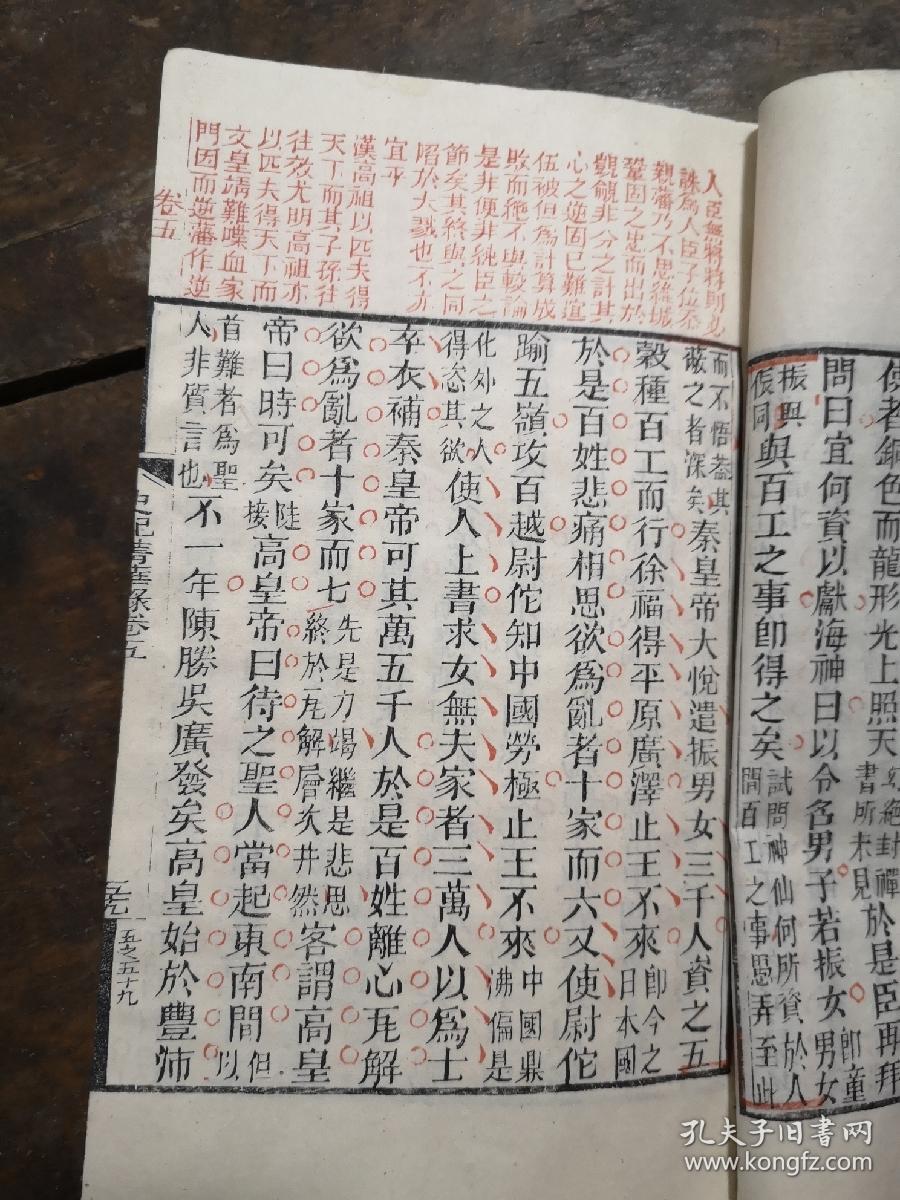 使者銅色而龍形光上照天書所未見於是臣再拜
問曰宜何資以獻海神曰以令名男子若振女即童男女
振興侲同與百工之事卽得之矣試問神仙何所資於人間百工之事愚弄至此
人臣無將將則必
誅為人臣子位忝
親藩乃不思維城
鞏固之忠而出於
覬覦非分之計其
心之逆固已難逭
伍被但為計算成
敗而絶不與較論
是非便非純臣之
節矣其終與之同
陷於大戮也不亦
宜乎
漢高祖以匹夫得
天下而其子孫往
往效尤明高祖亦
以匹夫得天下而
文皇靖難喋血家
門因而逆藩作逆
卷五
而不悟蓋其蔽之者深矣秦皇帝大悅遣振男女三千人資之五
穀種百工而行徐福得平原廣澤止王不來卽今之日本國
於是百姓悲痛相思欲為亂者十家而六又使尉佗
踰五嶺攻百越尉佗知中國勞極止王不來中國鼎沸偏是
化外之人得恣其欲使人上書求女無夫家者三萬人以為士
卒衣補秦皇帝可其萬五千人於是百姓離心瓦解
欲為亂者十家而七先是力竭繼是悲思終於瓦解層次井然客謂高皇
帝曰時可矣陡接高皇帝曰待之聖人當起東南間但以
首難者為聖人非質言也不一年陳勝吳廣發矣高皇始於豐沛
史記菁華錄卷五
五之五十九
孔夫子旧书网
www.kongfz.com